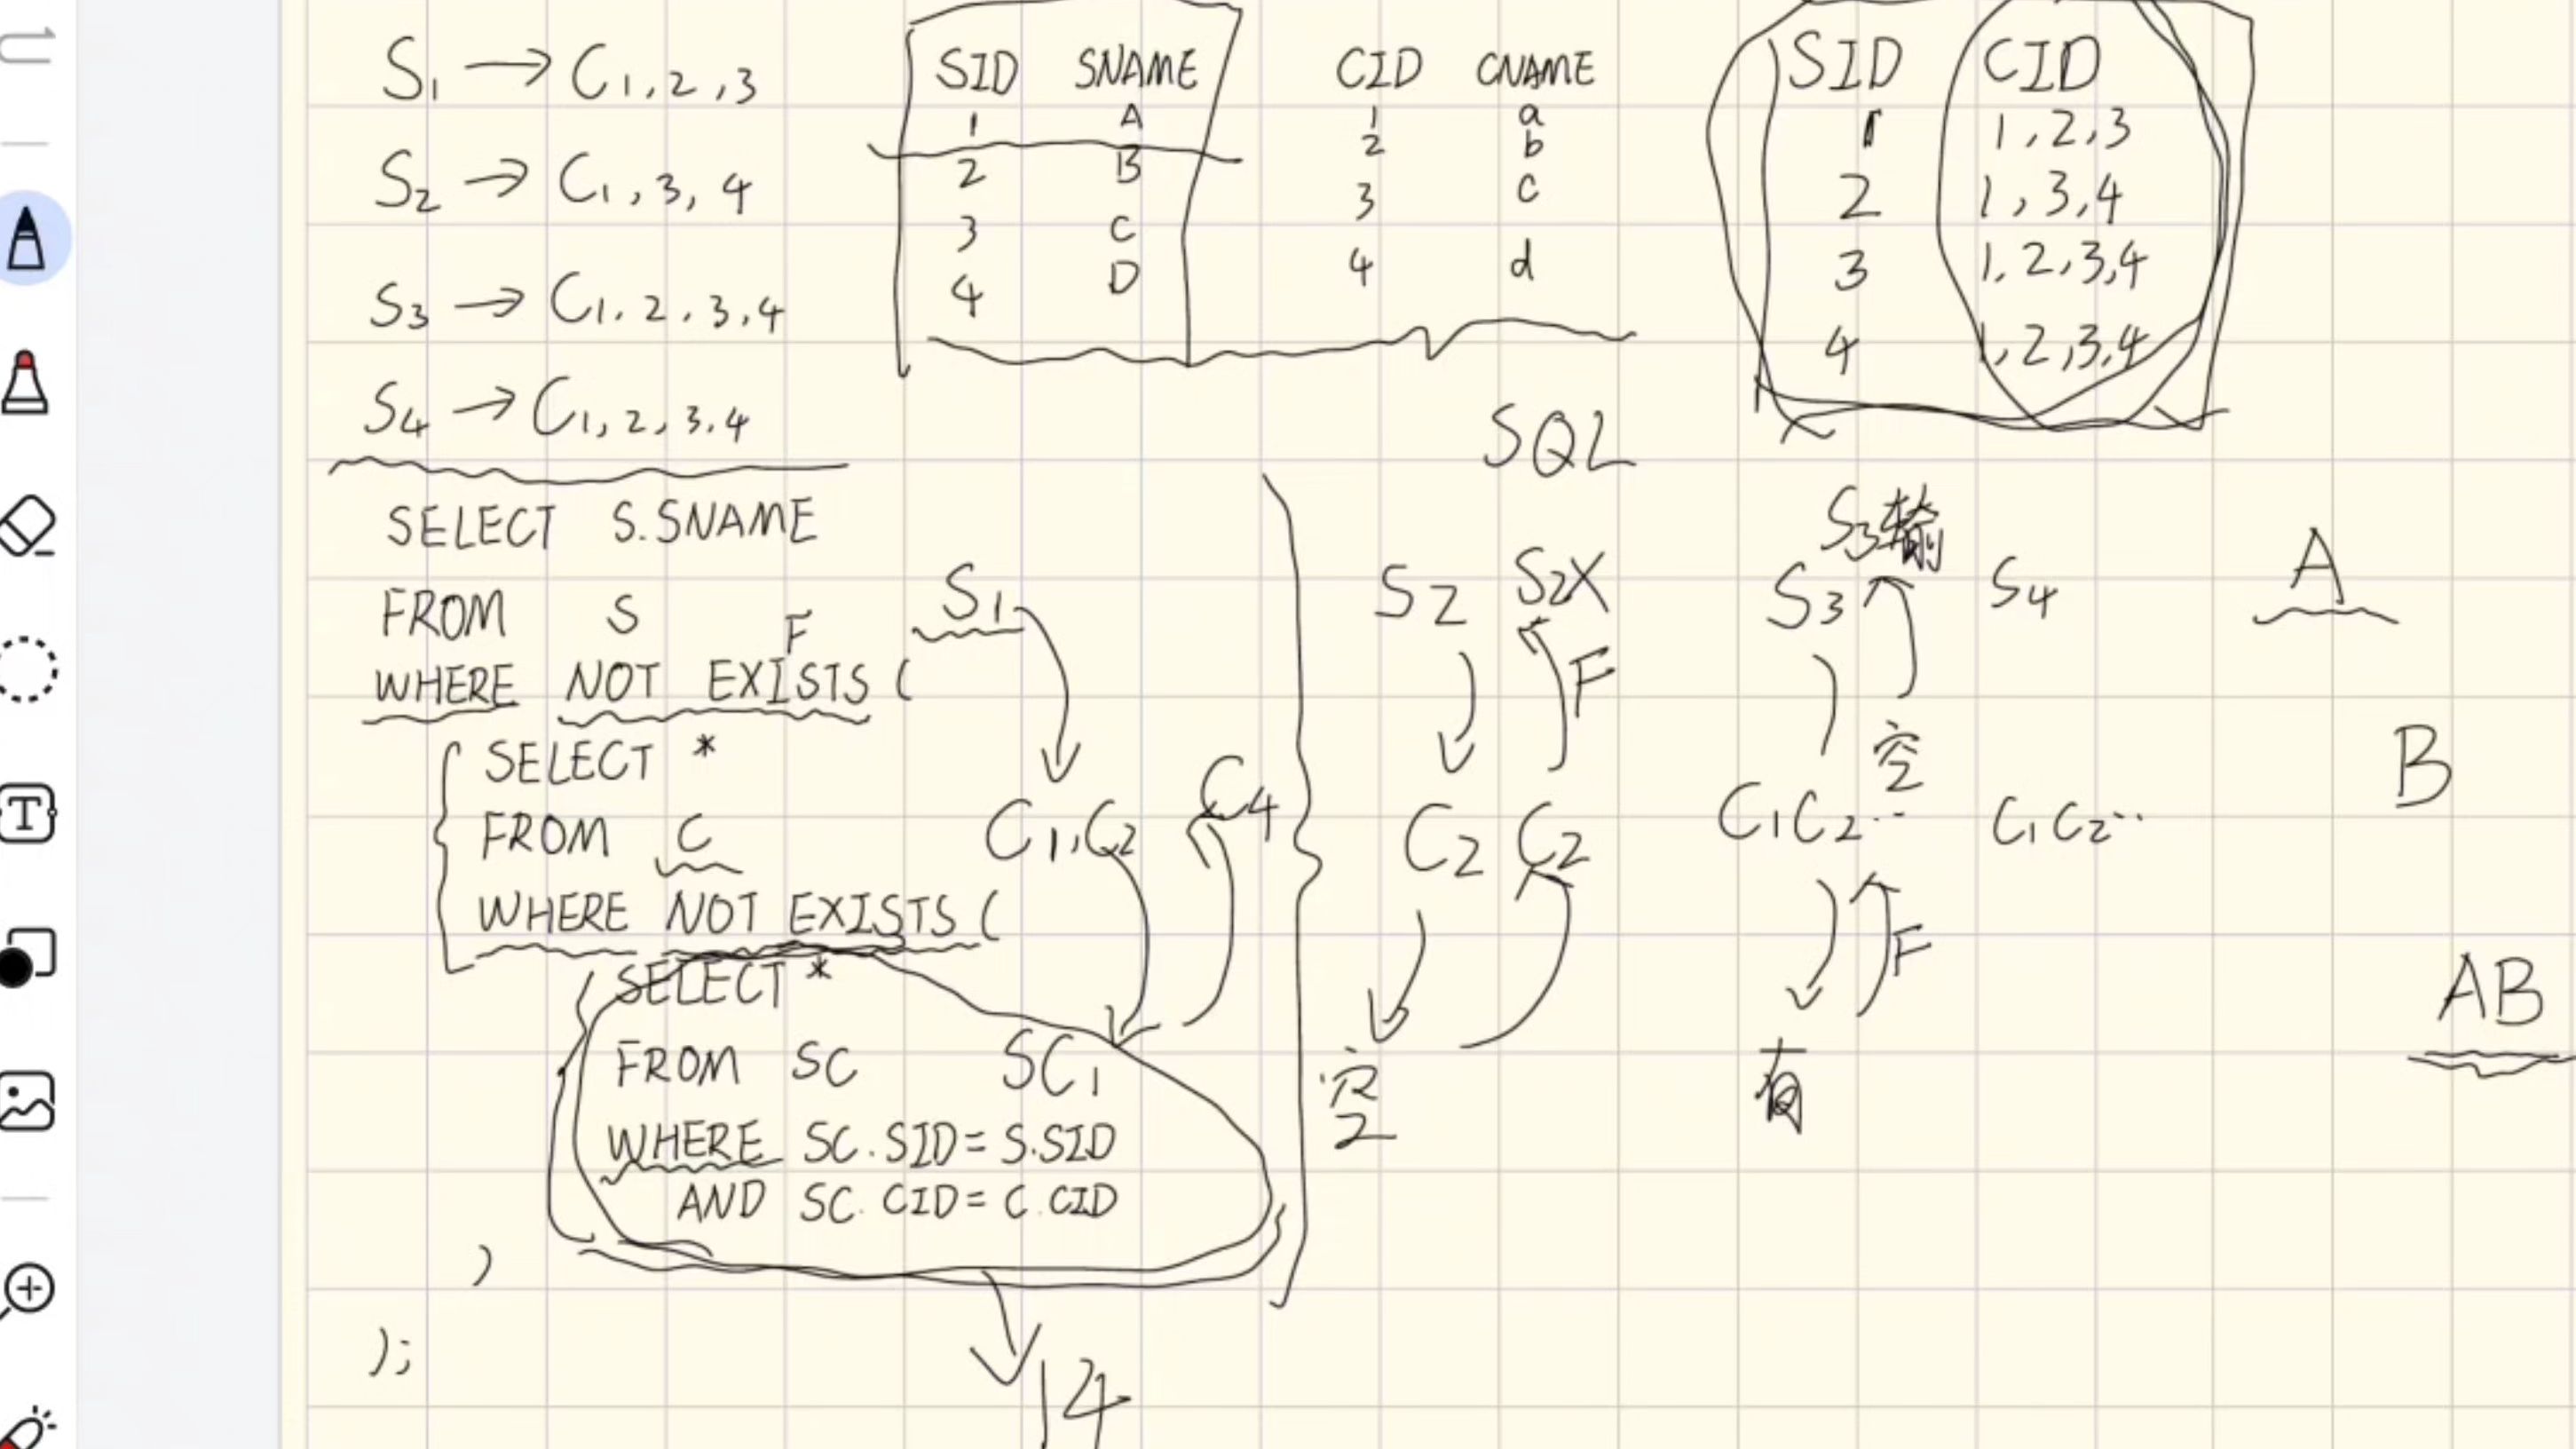 S1 → C1,2,3
S2 → C1,3,4
S3 → C1.2.3,4
S4 → C1,2,3.4
SID SNAME
1 A
2 B
3 C
4 D
CID CNAME
1 a
2 b
3 c
4 d
SID CID
1 1,2,3
2 1,3,4
3 1,2,3,4
4 1,2,3,4
SQL
SELECT S.SNAME
FROM S
F
WHERE NOT EXISTS (
SELECT *
FROM C
WHERE NOT EXISTS (
SELECT *
FROM SC
WHERE SC.SID = S.SID
AND SC.CID = C.CID
)
);
S1
C1,C2 C4
SC1
14
S2 S2X
F
C2 C2
空
S3输
S3 S4
空
C1C2·· C1C2··
F
有
A
B
AB
T